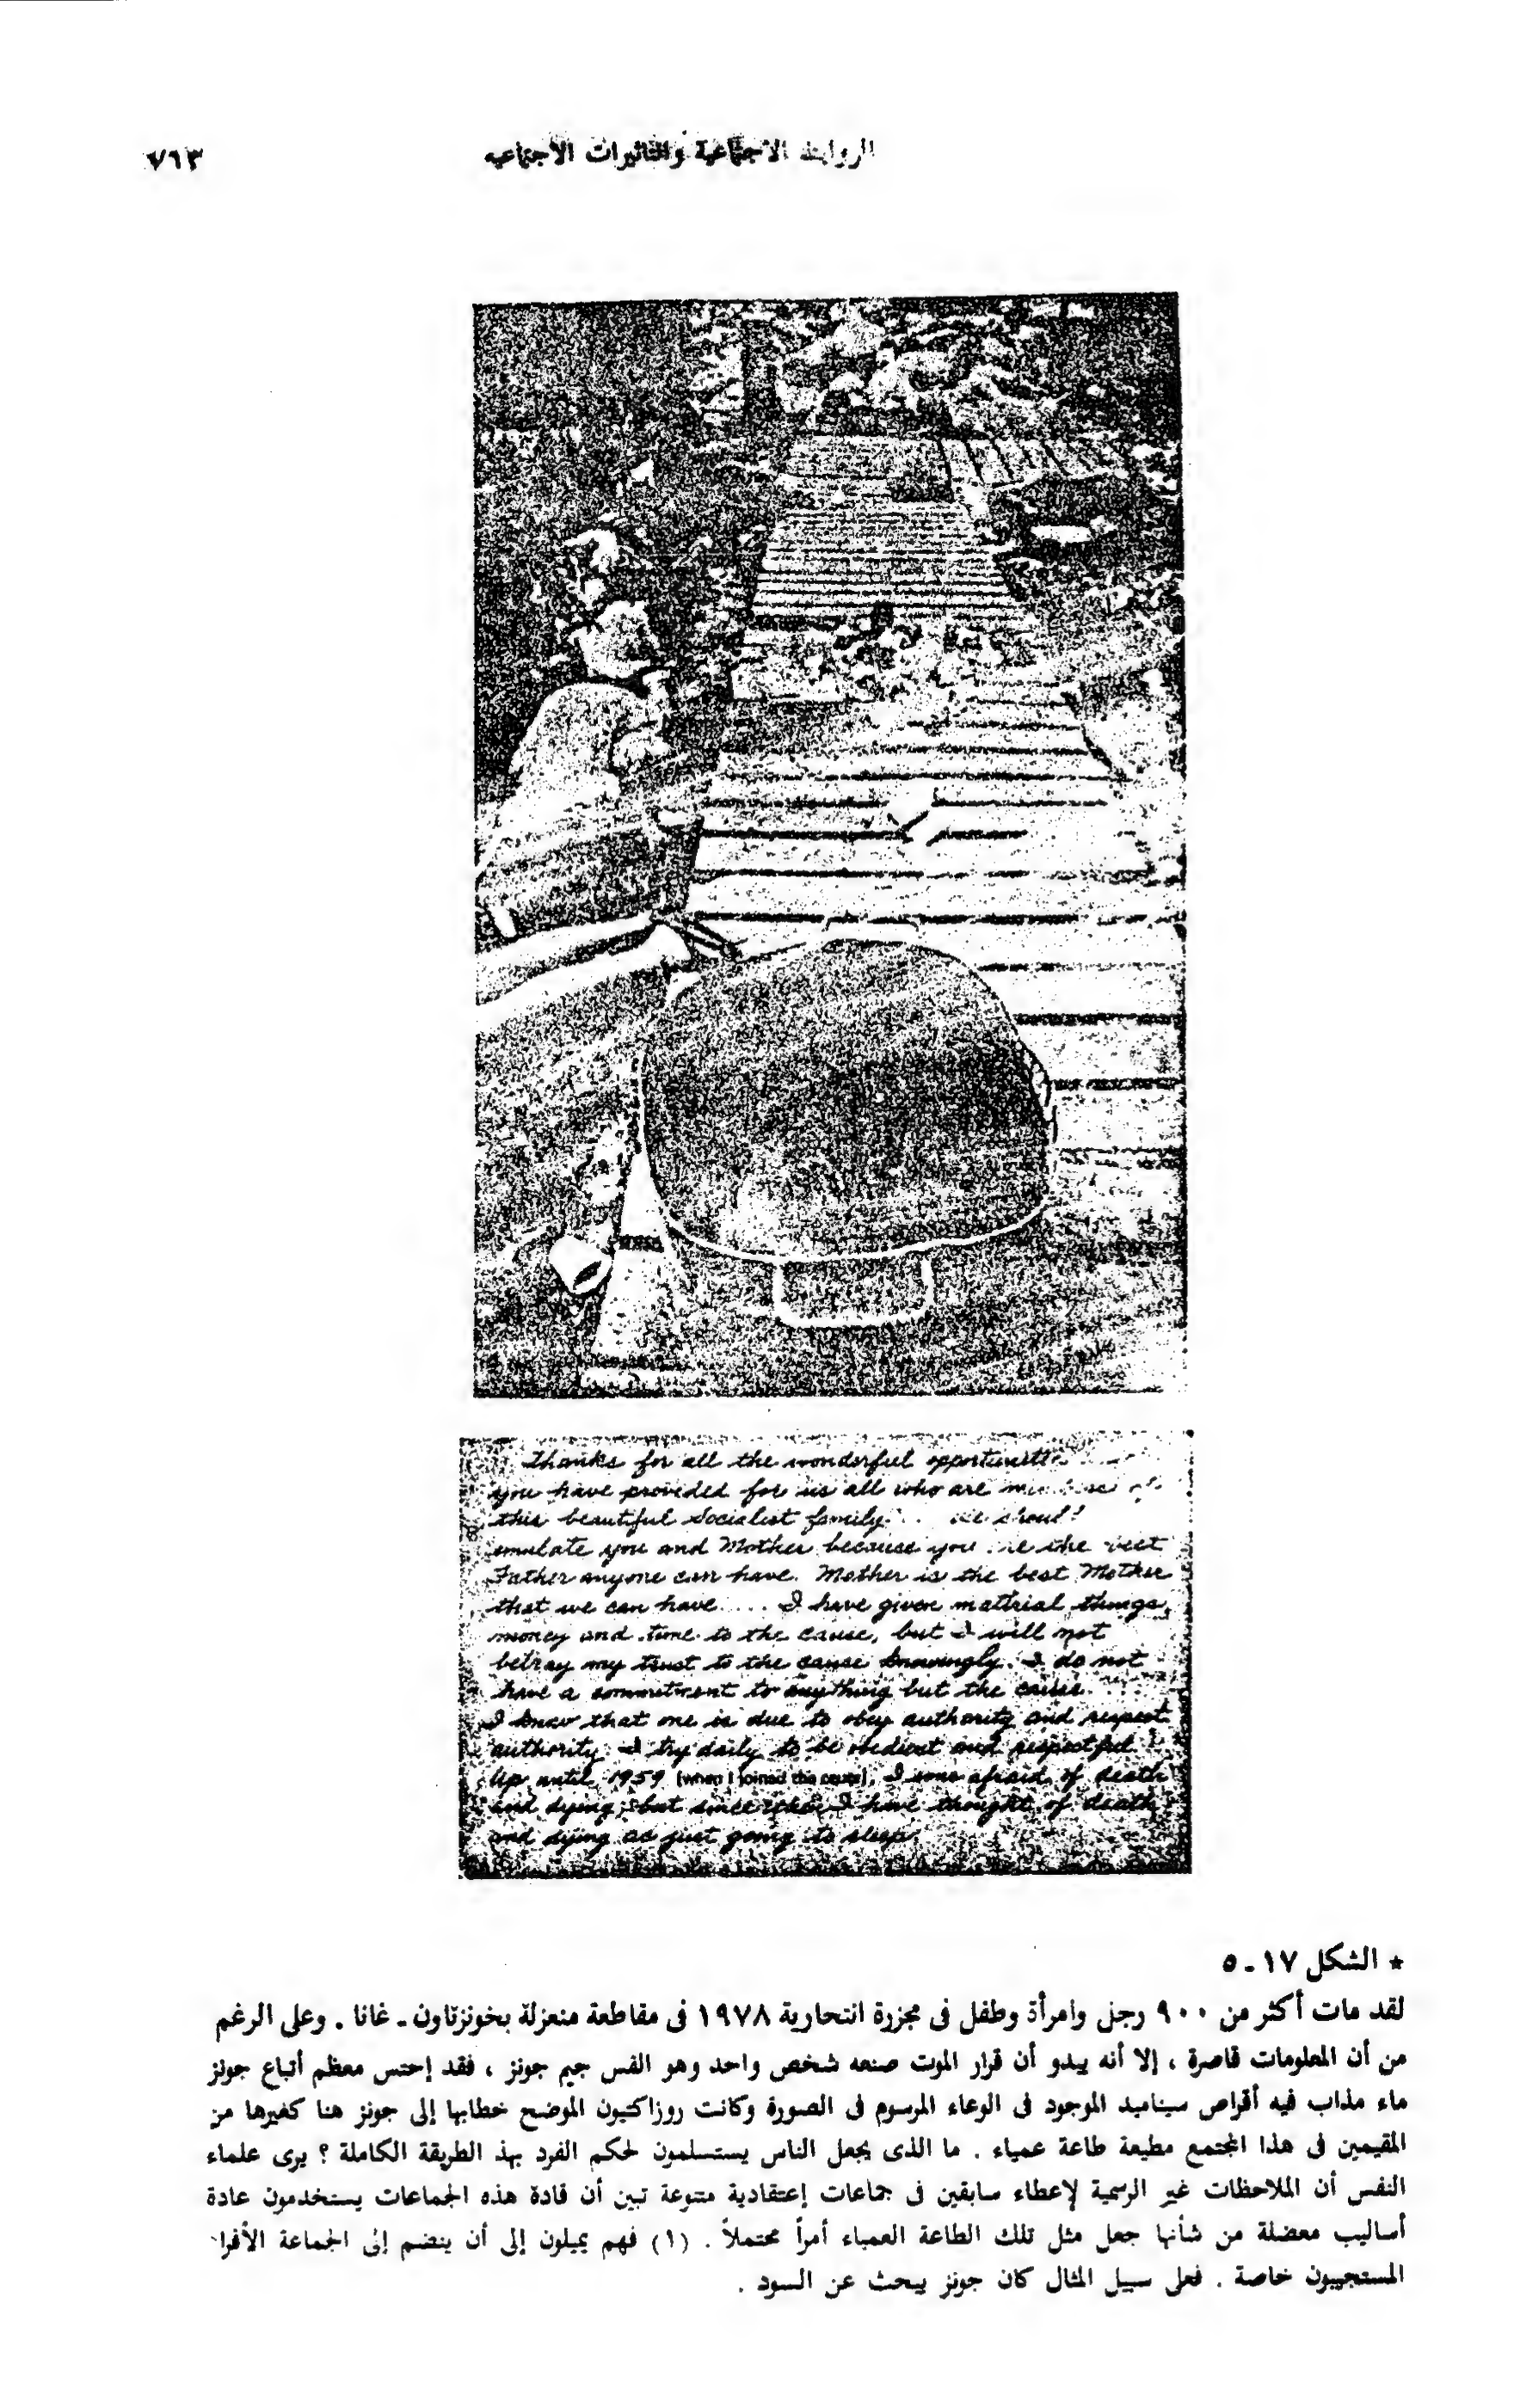 الروابط الاجتماعية والتأثيرات الاجتماعيه
٧٦٣
Thanks for all the wonderful
you have provided for us all who are
this beautiful Socialist family...
emulate you and Mother because you the best
Father anyone can have. Mother is the best Mother
that we can have.... I have given matirial things,
money and time to the cause, but I will not
betray my trust to the cause knowingly. I do not
have a commitment to anything but the cause.
I know that one is due to obey authority and respect
authority. I try daily to be obedient and respectful.
Up until 1959 (when I joined the cause), I was afraid of death
and dying, but since then I have thought of death
and dying as just going to sleep.
* الشكل ١٧ - ٥
لقد مات أكثر من ٩٠٠ رجل وامرأة وطفل فى مجزرة انتحارية ١٩٧٨ فى مقاطعة منعزلة بخونزتاون - غانا . وعلى الرغم
من أن المعلومات قاصرة ، إلا أنه يبدو أن قرار الموت صنعه شخص واحد وهو القس جيم جونز ، فقد إحتس معظم أتباع جونز
ماء مذاب فيه أقراص سيناميد الموجود فى الوعاء المرسوم فى الصورة وكانت روزاكتيون الموضح خطابها إلى جونز هنا كغيرها من
المقيمين فى هذا المجتمع مطيعة طاعة عمياء . ما الذى يجعل الناس يستسلمون لحكم الفرد بهذ الطريقة الكاملة ؟ يرى علماء
النفس أن الملاحظات غير الرسمية لإعطاء سابقين فى جماعات إعتقادية متنوعة تبين أن قادة هذه الجماعات يستخدمون عادة
أساليب معضلة من شأنها جعل مثل تلك الطاعة العمياء أمراً محتملاً . (١) فهم يميلون إلى أن ينضم إلى الجماعة الأفرا
المستجيبون خاصة . فعلى سبيل المثال كان جونز يبحث عن السود .